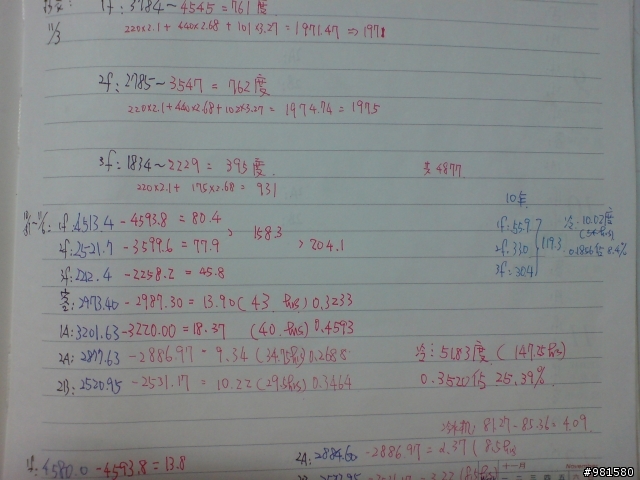 1f: 3784~4545=761度
11/3
220x2.1+440x2.68+101x3.27=1971.47⇒1971
2f: 2785~3547=762度
220x2.1+440x2.68+102x3.27=1974.74=1975
3f: 1834~2229=395度
共4877
220x2.1+175x2.68=931
1f: 4513.4-4593.8=80.4
158.3
204.1
2f: 2521.7-3599.6=77.9
3f: 2212.4-2258.2=45.8
10月
1f: 55.9
2f: 33.0
3f: 30.4
119.3
冷: 10.02度
2973.40-2987.30=13.90(43 hrs)0.3233
1A: 3201.63-3220.00=18.37 (40 hrs)0.4593
2A: 2877.63-2886.97=9.34(34.75hrs)0.2688
2B: 2520.95-2531.17=10.22(29.5hrs)0.3464
冷: 51.83度(147.25hrs)
0.3520佔25.39%
冷水机: 81.27-85.36=4.09
1f: 4580.0-4593.8=13.8
2A: 2884.60-2886.97=2.37(8.5hrs
十一月
#981580